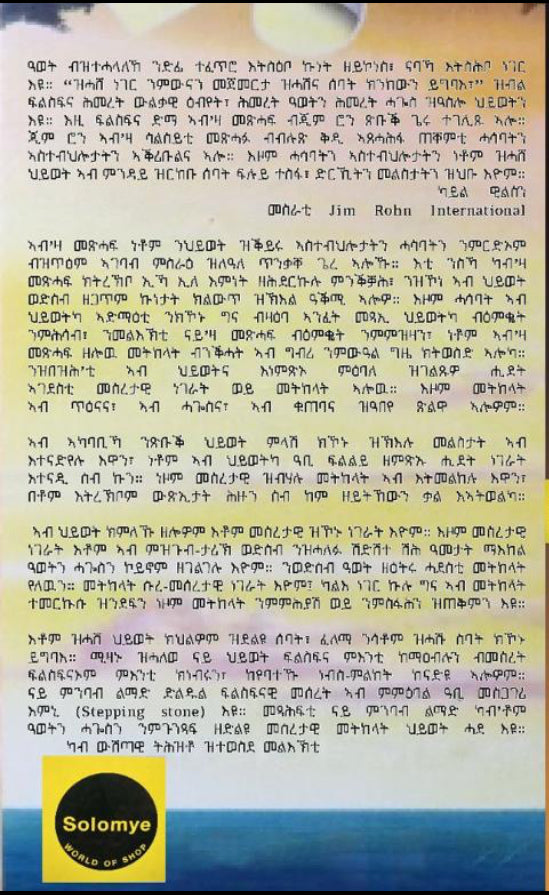 ዓወት ብዝተሓላለኸ ንድፊ ተፈጥሮ እትስዕቦ ኩነት ዘይኮነስ፣ ናባኻ እትስሕቦ ነገር
እዩ። “ዝሓሸ ነገር ንምውናን መጀመርታ ዝሓሸና ሰባት ክንከውን ይግባእ፣” ዝብል
ፍልስፍና ሕመረት ውልቃዊ ዕብየት፣ ሕመረት ዓወትን ሕመረት ሓጐስ ዝዓስሎ ህይወትን
እዩ። እዚ ፍልስፍና ድማ ኣብ'ዛ መጽሓፍ ብጂም ሮን ጽቡቕ ጌሩ ተገሊጹ ኣሎ።
ጂም ሮን ኣብ'ዛ ሳልሰይቲ መጽሓፉ ብብሉጽ ቅዲ ኣጸሓሕፋ ጠቐምቲ ሓሳባትን
ኣስተብህሎታትን ኣቕሪቡልና ኣሎ። እዞም ሓሳባትን ኣስተብህሎታትን ነቶም ዝሓሸ
ህይወት ኣብ ምንዳይ ዝርከቡ ሰባት ፍሉይ ተስፋ፣ ድርኺትን መልስታትን ዝህቡ እዮም።
ካይል ዊልሰን
መስራቲ Jim Rohn International
ኣብ'ዛ መጽሓፍ ነቶም ንህይወት ዝቕይሩ ኣስተብህሎታትን ሓሳባትን ንምርድኦም
ብዝጥዕም ኣገባብ ምስራዕ ዝለዓለ ጥንቃቐ ጌረ ኣሎኹ። እቲ ንስኻ ካብ'ዛ
መጽሓፍ ክትረኽቦ ኢኻ ኢለ እምነት ዘሕደርኩሉ ምንቕቓሕ፣ ንዝኾነ ኣብ ህይወት
ወድሰብ ዘጋጥም ኩነታት ክልውጥ ዝኽእል ዓቕሚ ኣሎዎ። እዞም ሓሳባት ኣብ
ህይወትካ ኣድማዕቲ ንክኾኑ ግና ብዛዕባ ኣንፈት መጻኢ ህይወትካ ብዕምቈት
ንምሕሳብ፣ ንመልእኽቲ ናይ'ዛ መጽሓፍ ብዕምቈት ንምምዝዛን፣ ነቶም ኣብ'ዛ
መጽሓፍ ዘሎዉ መትከላት ብንቕሓት ኣብ ግብሪ ንምውዓል ግዜ ክትወስድ ኣሎካ።
ንዝበዝሕ'ቲ ኣብ ህይወትና እነምጽኦ ምዕባለ ዝገልጹዎ ሒደት
ኣገደስቲ መሰረታዊ ነገራት ወይ መትከላት ኣሎዉ። እዞም መትከላት
ኣብ ጥዕናና፣ ኣብ ሓጐስና፣ ኣብ ቁጠባና ዝዓበየ ጽልዋ ኣሎዎም።
ኣብ ኣካባቢኻ ንጽቡቕ ህይወት ምላሽ ክኾኑ ዝኽእሉ መልስታት ኣብ
እተናድየሉ እዋን፣ ነቶም ኣብ ህይወትካ ዓቢ ፍልልይ ዘምጽኡ ሒደት ነገራት
እተናዲ ሰብ ኩን። ነዞም መሰረታዊ ዝብሃሉ መትከላት ኣብ እትመልከሉ እዋን፣
በቶም እትረኽቦም ውጽኢታት ሕዙን ሰብ ከም ዘይትኸውን ቃል እኣትወልካ።
ኣብ ህይወት ክምለኹ ዘሎዎም እቶም መሰረታዊ ዝኾኑ ነገራት እዮም። እዞም መሰረታዊ
ነገራት እቶም ኣብ ምዝጉብ-ታሪኽ ወድሰብ ንዝሓለፉ ሽድሽተ ሽሕ ዓመታት ማእከል
ዓወትን ሓጐስን ኮይኖም ዘገልገሉ እዮም። ንወድሰብ ዓወት ዘዕትሩ ሓደስቲ መትከላት
የለዉን። መትከላት ሱረ-መሰረታዊ ነገራት እዮም፣ ካልእ ነገር ኩሉ ግና ኣብ መትከላት
ተመርኩሱ ዝንደፍን ነዞም መትከላት ንምምሕያሽ ወይ ንምስፋሕን ዝጠቅምን እዩ።
እቶም ዝሓሸ ህይወት ክህልዎም ዝደልዩ ሰባት፣ ፈለማ ንሳቶም ዝሓሹ ሰባት ክኾኑ
ይግባእ። ሚዛኑ ዝሓለወ ናይ ህይወት ፍልስፍና ምእንቲ ከማዕብሉን ብመሰረት
ፍልስፍናኦም ምእንቲ ክነብሩን፣ ከየባተኹ ነብሰ-ምልከት ከናድዩ ኣሎዎም።
ናይ ምንባብ ልማድ ድልዱል ፍልስፍናዊ መሰረት ኣብ ምምዕባል ዓቢ መስጋገሪ
እምኒ (Stepping stone) እዩ። መጻሕፍቲ ናይ ምንባብ ልማድ ካብ'ቶም
ዓወትን ሓጐስን ንምጉንጻፍ ዘድልዩ መሰረታዊ መትከላት ህይወት ሓደ እዩ።
ካብ ውሽጣዊ ትሕዝቶ ዝተወስደ መልእኽቲ
Solomye
WORLD OF SHOP